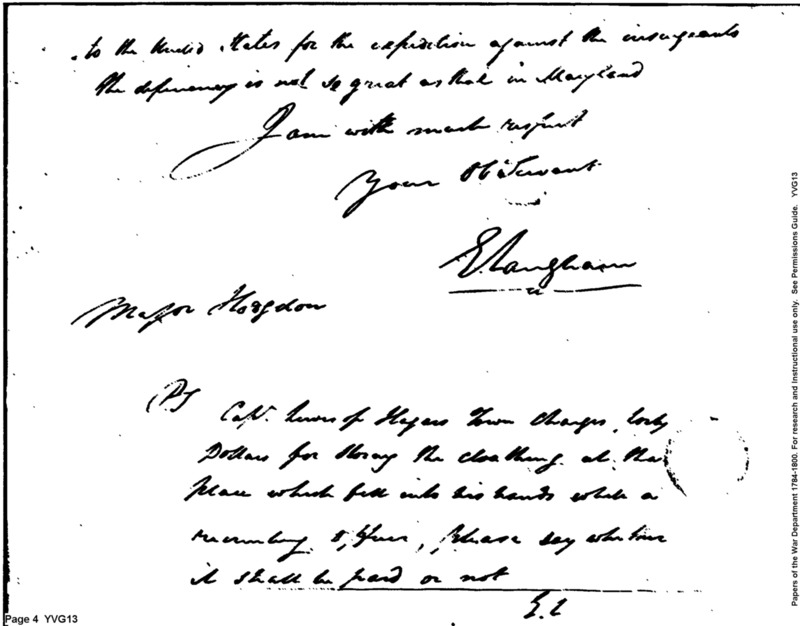 to the United States for the expedition against the insurgents
the deficiency is not so great as that in Maryland
I am with much respect
Your Ob Servant
E Langham
Major Hogdon
PS
Capt. Lewis of Hagars Town Charges forty
Dollars for Storag the cloathing at that
place which fell into his hands while a
recruiting Officer, please say whether
it shall be paid or not
E. L
Page 4 YVG13
Papers of the War Department 1784-1800. For research and instructional use only. See Permissions Guide. YVG13